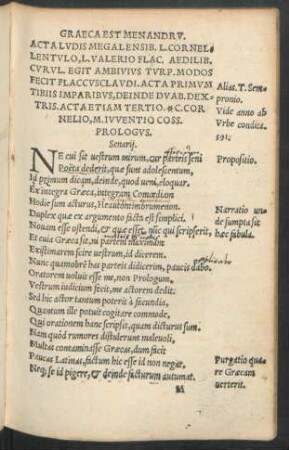 GRAECA EST MENANDRV.
ACTA LVDIS MEGALENSIB. L. CORNEL
LENTVLO, L. VALERIO FLAC. AEDILIB.
CVRVL. EGIT AMBIVIVS TVRP. MODOS
FECIT FLACCVS CLAVDI. ACTA PRIMVM
TIBIIS IMPARIBVS, DEINDE DVAB. DEX-
TRIS. ACTA ETIAM TERTIO. C. COR-
NELIO, M. IVVENTIO COSS.
Alias. T. Sem
pronio.
Vide anno ab
Vrbe condita
591.
PROLOGVS.
Senarij.
NE cui sit uestrum mirum, cur parteis seni
Poeta dederit, quæ sunt adolescentum,
Propositio.
Id primum dicam, deinde, quod ueni, eloquar.
Ex integra Græca, integram Comœdiam
Hodie sum acturus, Heautontimorumenon.
Duplex quæ ex argumento facta est simplici.
Narratio un
de sumpta sit
hæc fabula.
Nouam esse ostendi, & quæ esset, nunc qui scripserit,
Et cuia Græca sit, ni partem maximam
Existimarem scire uestrum, id dicerem.
Nunc quamobrem has parteis didicerim, paucis dabo.
Oratorem uoluit esse me, non Prologum.
Vestrum iudicium fecit, me actorem dedit.
Sed hic actor tantum poterit à facundia,
Quantum ille potuit cogitare commode,
Qui orationem hanc scripsit, quam dicturus sum.
Nam quòd rumores distulerunt maleuoli,
Multas contaminasse Græcas, dum facit
Paucas Latinas, factum hic esse id non negat,
Neq; se id pigere, & deinde facturum autumat.
Purgatio qua
re Græcam
uerterit.